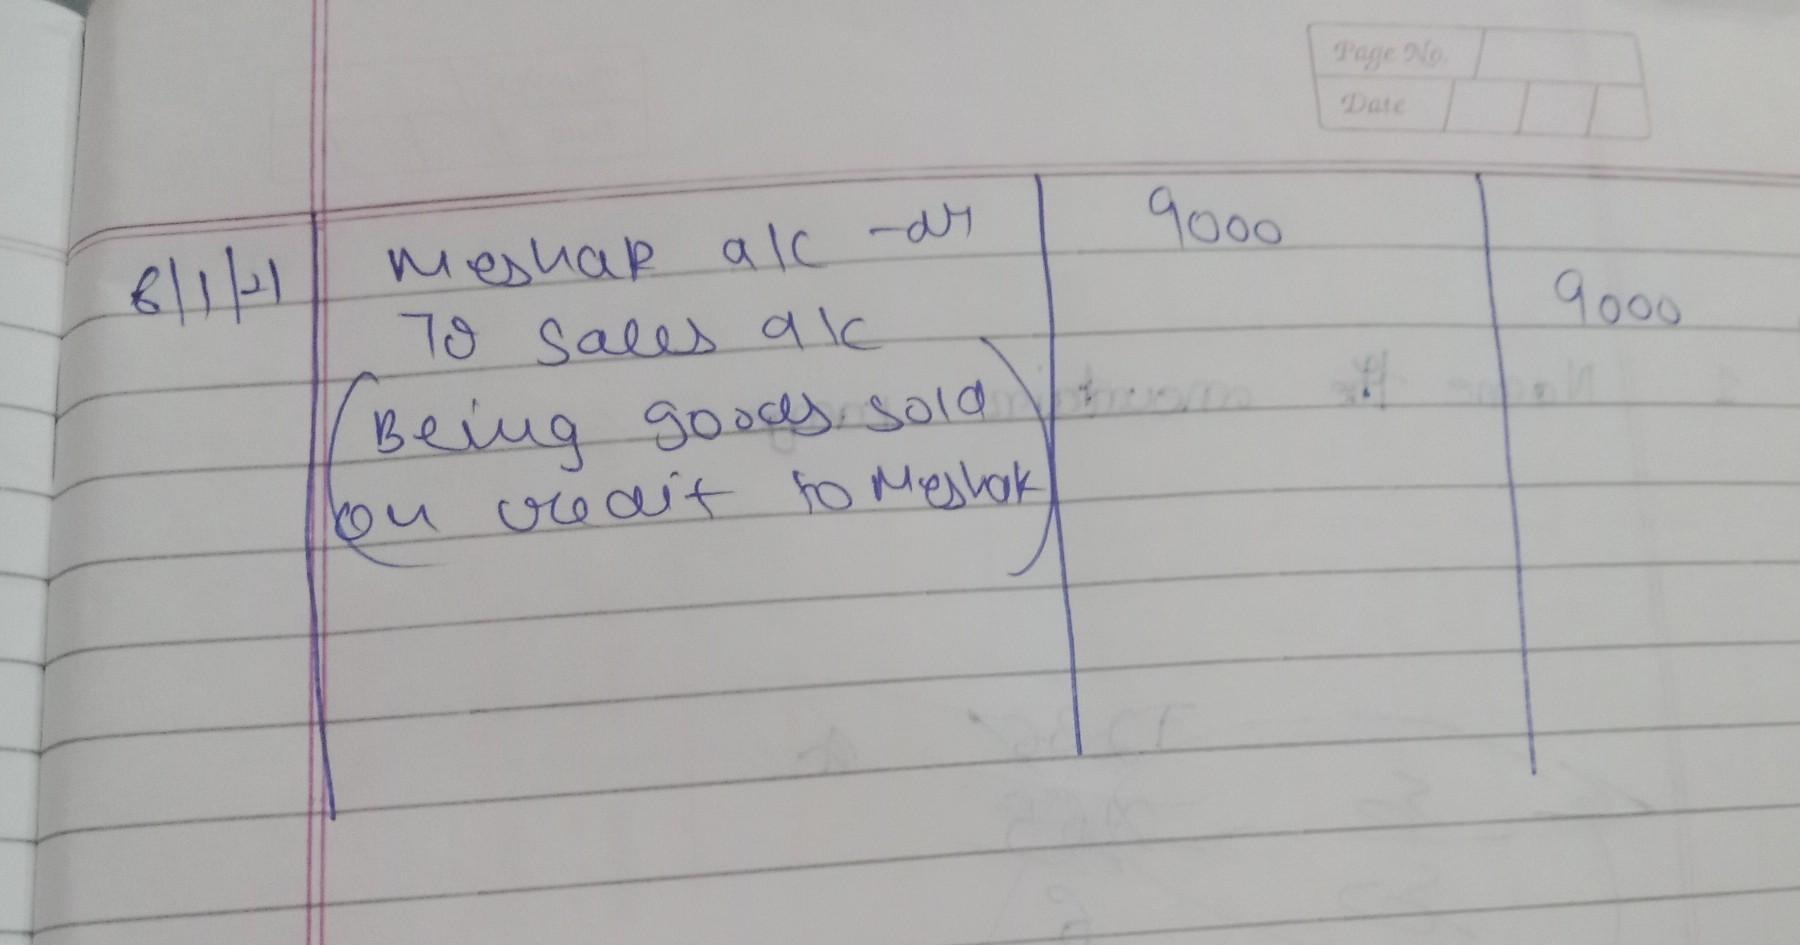 Page No.
Date
6/1/21 Meshak a/c -dr 9000
To Sales a/c 9000
(Being goods sold
on credit to Meshak)